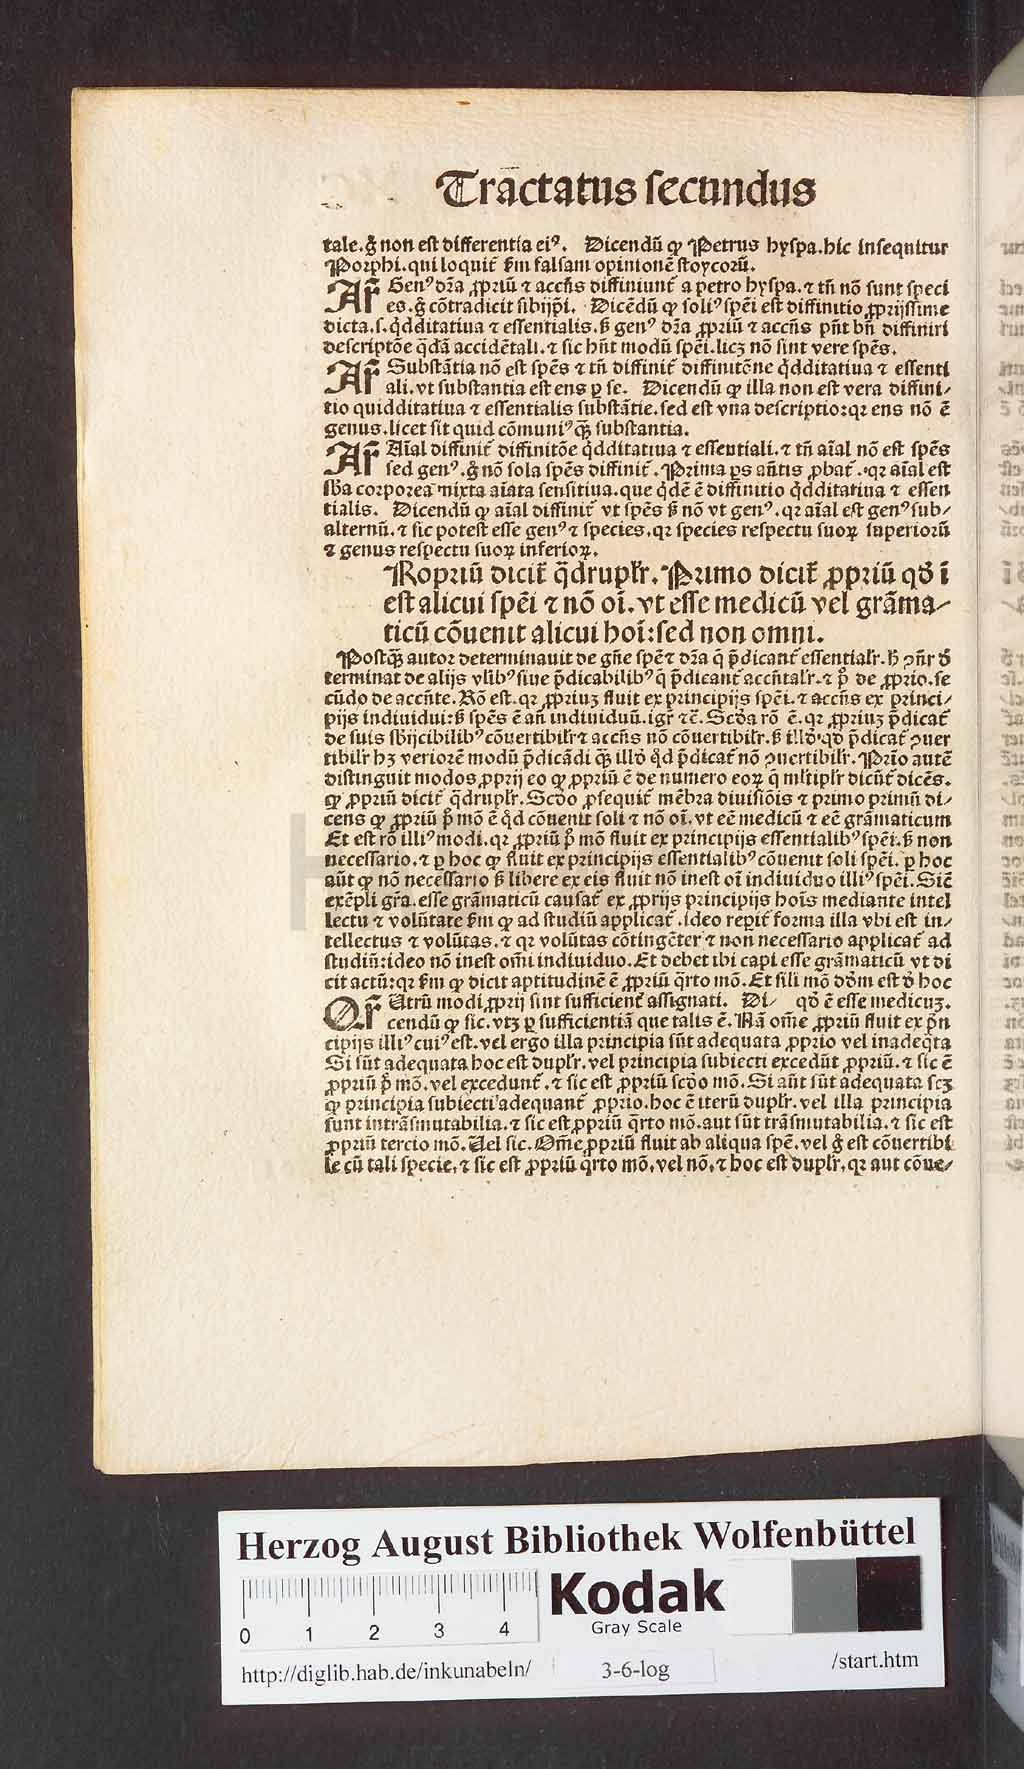 Tractatus secundus
tale.g̃ non est differentia eiꝰ. Dicendũ ꝙ Petrus hyspa.hic insequitur
Porphi.qui loquit᷑ ẜm falsam opinionẽ stoycorũ.
Ar̃ Genꝰ dr̃a ꝓpriũ ⁊ accñs diffiniunt᷑ a petro hyspa.⁊ tñ nõ sunt speci
es.g̃ cõtradicit sibijpĩ. Dicẽdũ ꝙ soliꝰ spẽi est diffinitio ꝓprijssime
dicta.s.q̃dditatiua ⁊ essentialis.ß genꝰ dr̃a ꝓpriũ ⁊ accñs pñt bñ diffiniri
descriptõe q̃dã accidẽtali.⁊ sic hñt modũ spẽi.licꝫ nõ sint vere spẽs.
Ar̃ Substãtia nõ est spẽs ⁊ tñ diffinit᷑ diffinitẽne q̃dditatiua ⁊ essenti
ali.vt substantia est ens ꝑ se. Dicendũ ꝙ illa non est vera diffini/
tio quidditatiua ⁊ essentialis substãtie.sed est vna descriptio:qꝛ ens nõ ẽ
genus.licet sit quid cõmuniꝰ qᷓꝫ substantia.
Ar̃ Aĩal diffinit᷑ diffinitõe q̃dditatiua ⁊ essentiali.⁊ tñ aĩal nõ est spẽs
sed genꝰ.g̃ nõ sola spẽs diffinit᷑. Prima ꝑs añtis ꝓbat᷑.qꝛ aĩal est
sb̃a corporea mixta aĩata sensitiua.que q̃dẽ ẽ diffinitio q̃dditatiua ⁊ essen
tialis. Dicendũ ꝙ aĩal diffinit᷑ vt spẽs ß nõ vt genꝰ.qꝛ aĩal est genꝰ sub/
alternũ.⁊ sic potest esse genꝰ ⁊ species.qꝛ species respectu suoꝝ superiorũ
⁊ genus respectu suoꝝ inferioꝝ.
Ropriũ dicit᷑ q̃druplr̃. Primo dicit᷑ ꝓpriũ qd̃ ĩ
est alicui spẽi ⁊ nõ oĩ.vt esse medicũ vel grãma/
ticũ cõuenit alicui hoĩ:sed non omni.
Postqᷓꝫ autor determinauit de gñe spẽ ⁊ dr̃a q̃ p̃dicant᷑ essentialr̃.h̃ ꝯñr d̃
terminat de alijs vlibꝰ siue p̃dicabilibꝰ q̃ p̃dicant᷑ accñtalr̃.⁊ p̃ de ꝓprio.se
cũdo de accñte. Rõ est.qꝛ ꝓpriuꝫ fluit ex principijs spẽi.⁊ accñs ex princi/
pijs indiuidui:ß spẽs ẽ añ indiuiduũ.igr̃ ⁊c̃. Scd̃a rõ ẽ.qꝛ ꝓpriuꝫ p̃dicat᷑
de suis sb̃ijcibilibꝰ cõuertibilr̃ ⁊ accñs nõ cõuertibilr̃.ß illd̃ qd̃ p̃dicat᷑ ꝯuer
tibilr̃ hꝫ veriorẽ modũ p̃dicãdi qᷓꝫ illd̃ q̃d p̃dicat᷑ nõ ꝯuertibilr̃. Prĩo autẽ
distinguit modos ꝓprij eo ꝙ ꝓpriũ ẽ de numero eoꝝ q̃ ml̃tiplr̃ dicũt᷑ dicẽs.
ꝙ ꝓpriũ dicit᷑ q̃druplr̃. Scd̃o ꝓsequit᷑ mẽbra diuisiõis ⁊ primo primũ di/
cens ꝙ ꝓpriũ p̃ mõ ẽ q̃d cõuenit soli ⁊ nõ oĩ.vt eẽ medicũ ⁊ eẽ grãmaticum
Et est rõ illiꝰ modi.qꝛ ꝓpriũ p̃ mõ fluit ex principijs essentialibꝰ spẽi.ß non
necessario.⁊ ꝑ hoc ꝙ fluit ex principijs essentialibꝰ cõuenit soli spẽi.ꝑ hoc
aũt ꝙ nõ necessario ß libere ex eis fluit nõ inest oĩ indiuiduo illiꝰ spẽi. Sic̃
exẽpli gr̃a.esse grãmaticũ causat᷑ ex ꝓprijs principijs hoĩs mediante intel
lectu ⁊ volũtate ẜm ꝙ ad studiũ applicat᷑.ideo reꝑit᷑ forma illa vbi est in/
tellectus ⁊ volũtas.⁊ qꝛ volũtas cõtingẽter ⁊ non necessario applicat᷑ ad
studiũ:ideo nõ inest om̃i indiuiduo. Et debet ibi capi esse grãmaticũ vt di
cit actũ:qꝛ ẜm ꝙ dicit aptitudinẽ ẽ ꝓpriũ q̃rto mõ. Et sili mõ dd̃m est d̃ hoc
Qr̃ Utrũ modi ꝓprij sint sufficient᷑ assignati. Di/ qd̃ ẽ esse medicuꝫ.
cendũ ꝙ sic.vtꝫ ꝑ sufficientiã que talis ẽ. Nã om̃e ꝓpriũ fluit ex p̃n
cipijs illiꝰ cuiꝰ est.vel ergo illa principia sũt adequata ꝓprio vel inadeq̃ta
Si sũt adequata hoc est duplr̃.vel principia subiecti excedũt ꝓpriũ.⁊ sic ẽ
ꝓpriũ p̃ mõ.vel excedunt᷑.⁊ sic est ꝓpriũ scd̃o mõ. Si aũt sũt adequata scꝫ
ꝙ principia subiecti adequant᷑ ꝓprio.hoc ẽ iterũ duplr̃.vel illa principia
sunt intrãsmutabilia.⁊ sic est ꝓpriũ q̃rto mõ.aut sũt trãsmutabilia.⁊ sic est
ꝓpriũ tercio mõ. Uel sic. Om̃e ꝓpriũ fluit ab aliqua spẽ.vel g̃ est cõuertibi
le cũ tali specie.⁊ sic est ꝓpriũ q̃rto mõ.vel nõ.⁊ hoc est duplr̃.qꝛ aut cõue/
Herzog August Bibliothek Wolfenbüttel
0 1 2 3 4
Kodak
Gray Scale
http://diglib.hab.de/inkunabeln/ 3-6-log /start.htm